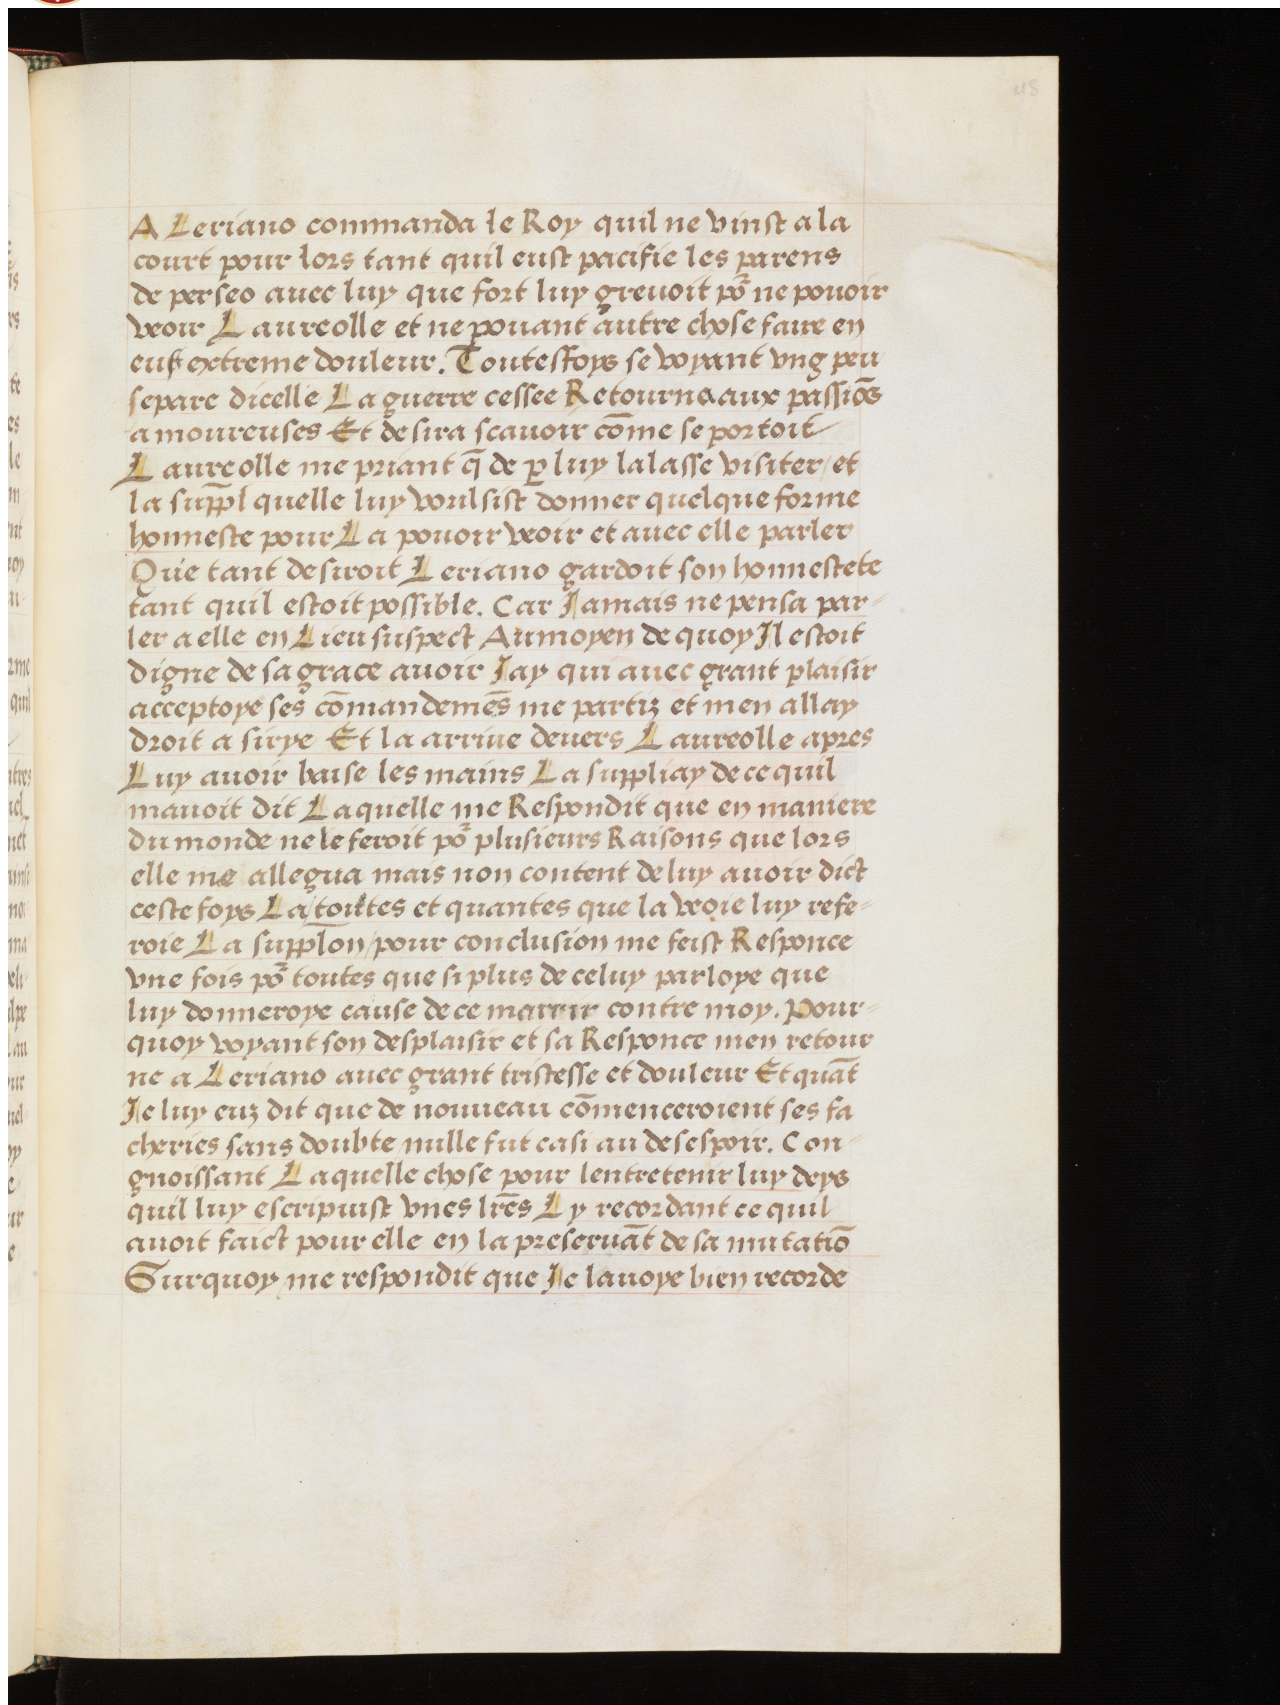 A Leriano commanda le Roy quil ne vinst a la
court pour lors tant quil eust pacifie les parens
de perseo auec luy que fort luy greuoit po᷑ ne pouoir
veoir Laureolle et ne pouant autre chose faire en
eust extreme douleur. Toutesfoys se voyant vng peu
separe dicelle La guerre cessee Retourna aux passiõs
amoureuses Et desira scauoir cõme se portoit
Laureolle me priant q̃ de ꝑ luy lalasse visiter / et
la supp̃l quelle luy voulsist donner quelque forme
honneste pour La pouoir veoir et auec elle parler
Que tant desiroit Leriano gardoit son honnestete
tant quil estoit possible. Car Jamais ne pensa par-
ler a elle en Lieu suspect Au moyen de quoy Il estoit
digne de sa grace auoir Jay qui auec grant plaisir
acceptoye ses cõmandemẽs me partiz et men allay
droit a sirye Et la arriue deuers Laureolle apres
Luy auoir baise les mains La suppliay de ce quil
mauoit dit Laquelle me Respondit que en maniere
du monde ne le feroit po᷑ plusieurs Raisons que lors
elle me allegua mais non content de luy auoir dict
ceste foys La / toutes et quantes que la veoie luy refe-
roie La suppl̃on / pour conclusion me feist Responce
vne fois po᷑ toutes que si plus de celuy parloye que
luy donneroye cause de ce marrir contre moy. Pour-
quoy voyant son desplaisir et sa Responce men retour
ne a Leriano auec grant tristesse et douleur Et quãt
Je luy euz dit que de nouueau cõmenceroient ses fa
cheries sans doubte nulle fut casi au desespoir. Con-
gnoissant Laquelle chose pour lentretenir luy deys
quil luy escripuist vnes lr̃es Ly recordant ce quil
auoit faict pour elle en la preseruãt de sa mutatiõ
Surquoy me respondit que Je lauoye bien recorde